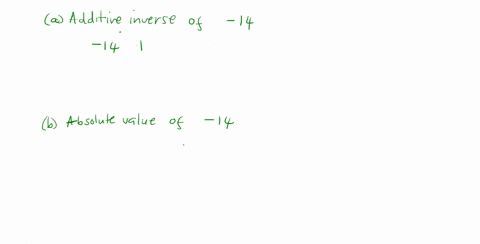 (a) Additive inverse of -14
-14 1
(b) Absolute value of -14